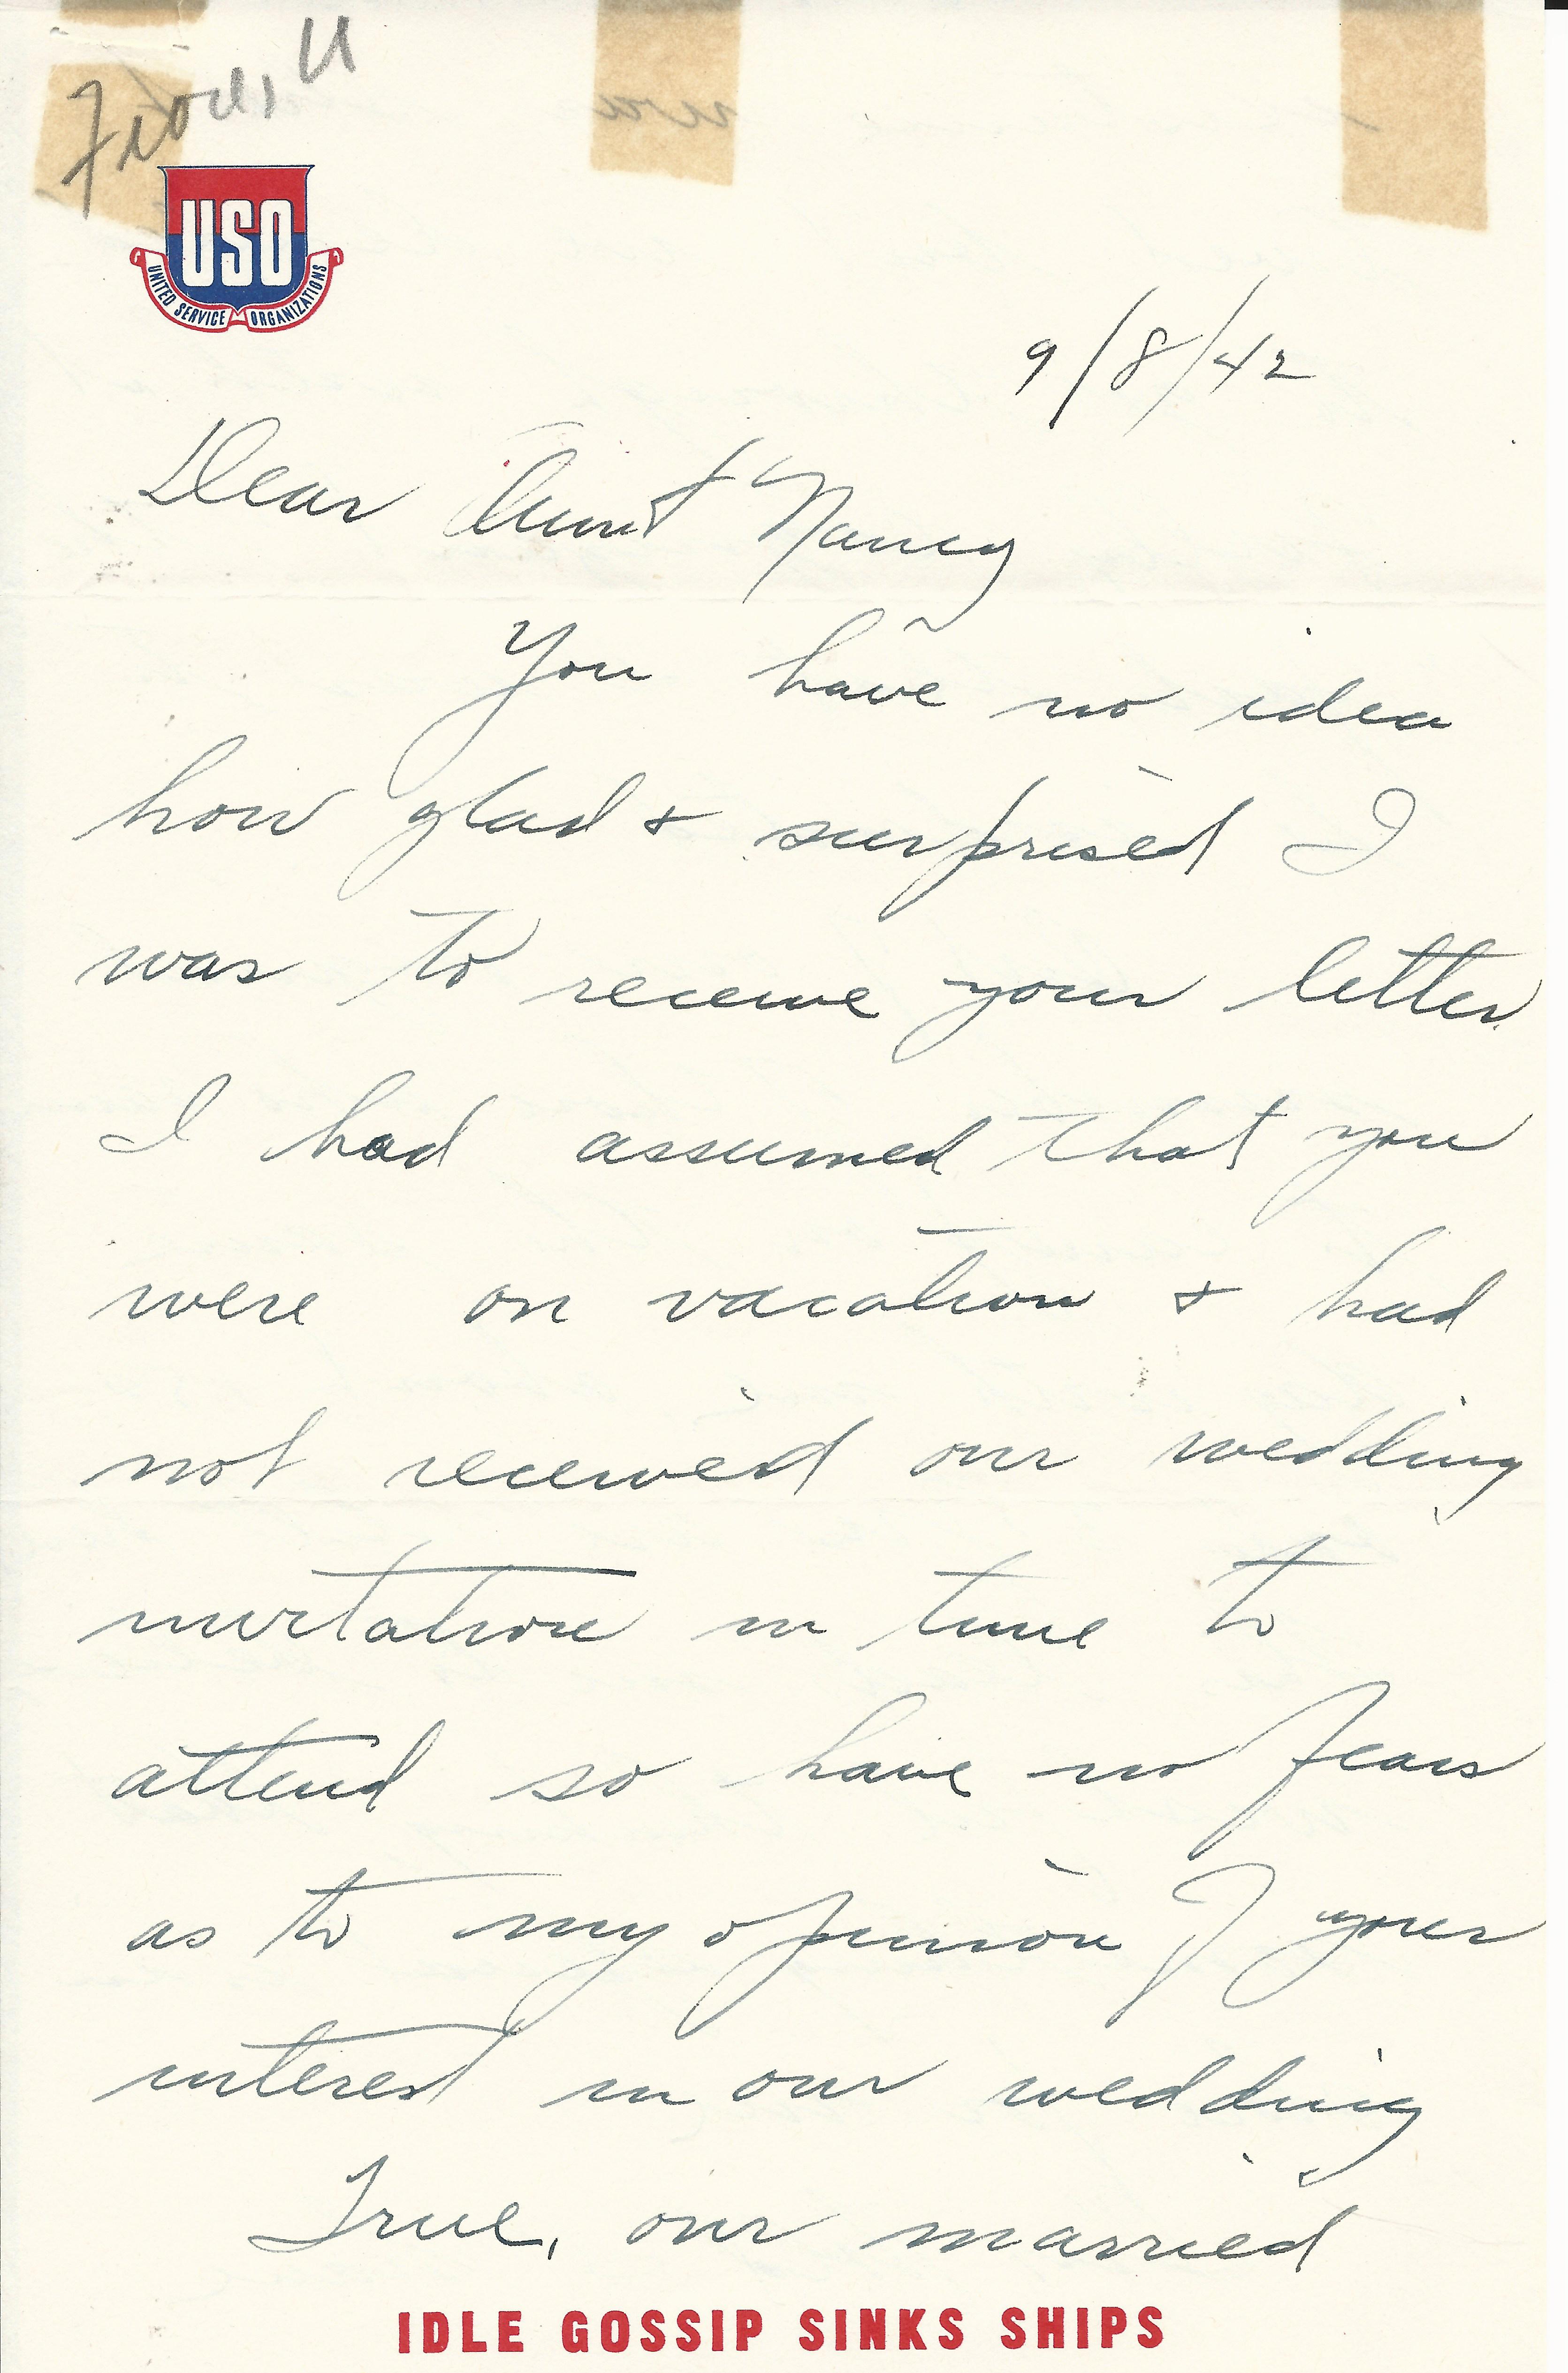 USO
UNITED SERVICE ORGANIZATIONS
9/8/42
Dear Aunt Nancy
You have no idea
how glad & surprised I
was to receive your letter.
I had assumed that you
were on vacation & had
not received our wedding
invitation in time to
attend so have no fears
as to my opinion of your
interest in our wedding
True, our married
IDLE GOSSIP SINKS SHIPS